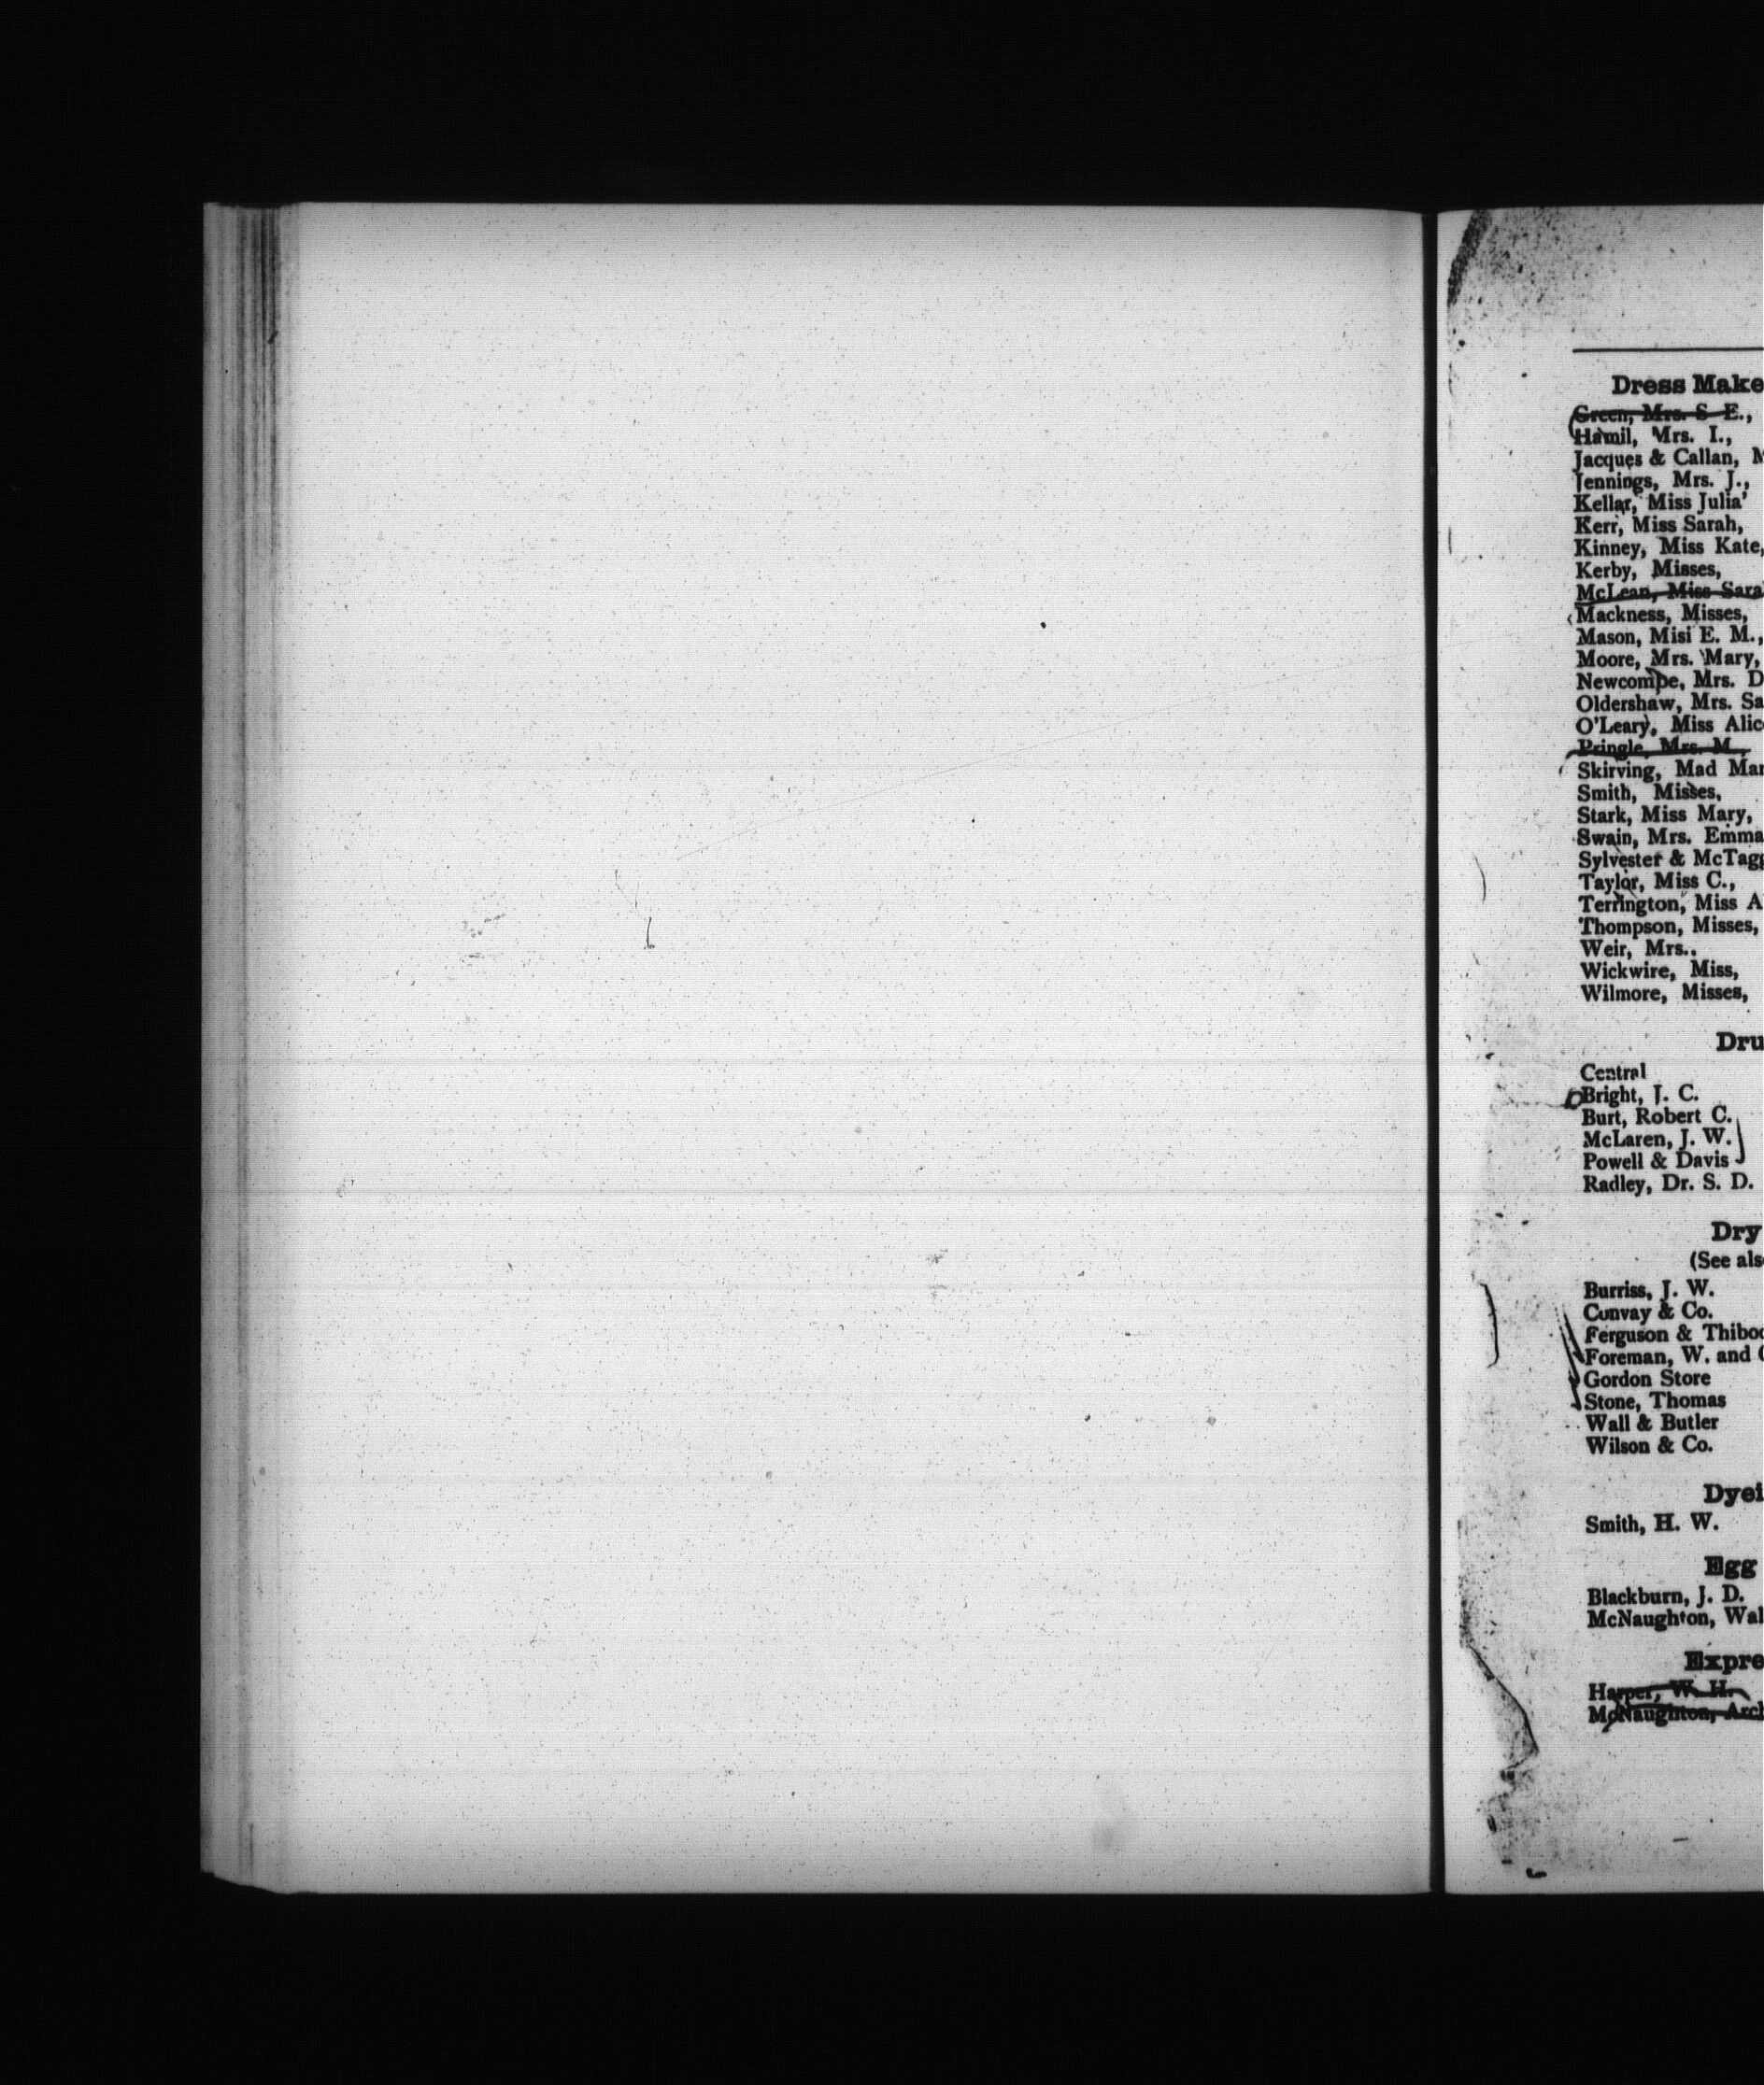 Dress Make
Green, Mrs. S E.,
Hamil, Mrs. I.,
Jacques & Callan, M
Jennings, Mrs. J.,
Kellar, Miss Julia
Kerr, Miss Sarah,
Kinney, Miss Kate,
Kerby, Misses,
McLean, Miss Sara
Mackness, Misses,
Mason, Misi E. M.,
Moore, Mrs. Mary,
Newcombe, Mrs. D
Oldershaw, Mrs. Sa
O'Leary, Miss Alic
Pringle, Mrs. M.,
Skirving, Mad Mar
Smith, Misses,
Stark, Miss Mary,
Swain, Mrs. Emma
Sylvester & McTagg
Taylor, Miss C.,
Terrington, Miss A
Thompson, Misses,
Weir, Mrs..
Wickwire, Miss,
Wilmore, Misses,
Dru
Central
Bright, J. C.
Burt, Robert C.
McLaren, J. W.
Powell & Davis
Radley, Dr. S. D.
Dry
(See als
Burriss, J. W.
Convay & Co.
Ferguson & Thibo
Foreman, W. and
Gordon Store
Stone, Thomas
Wall & Butler
Wilson & Co.
Dyei
Smith, H. W.
Egg
Blackburn, J. D.
McNaughton, Wal
Expre
Harper, W. H.
McNaughton, Arch